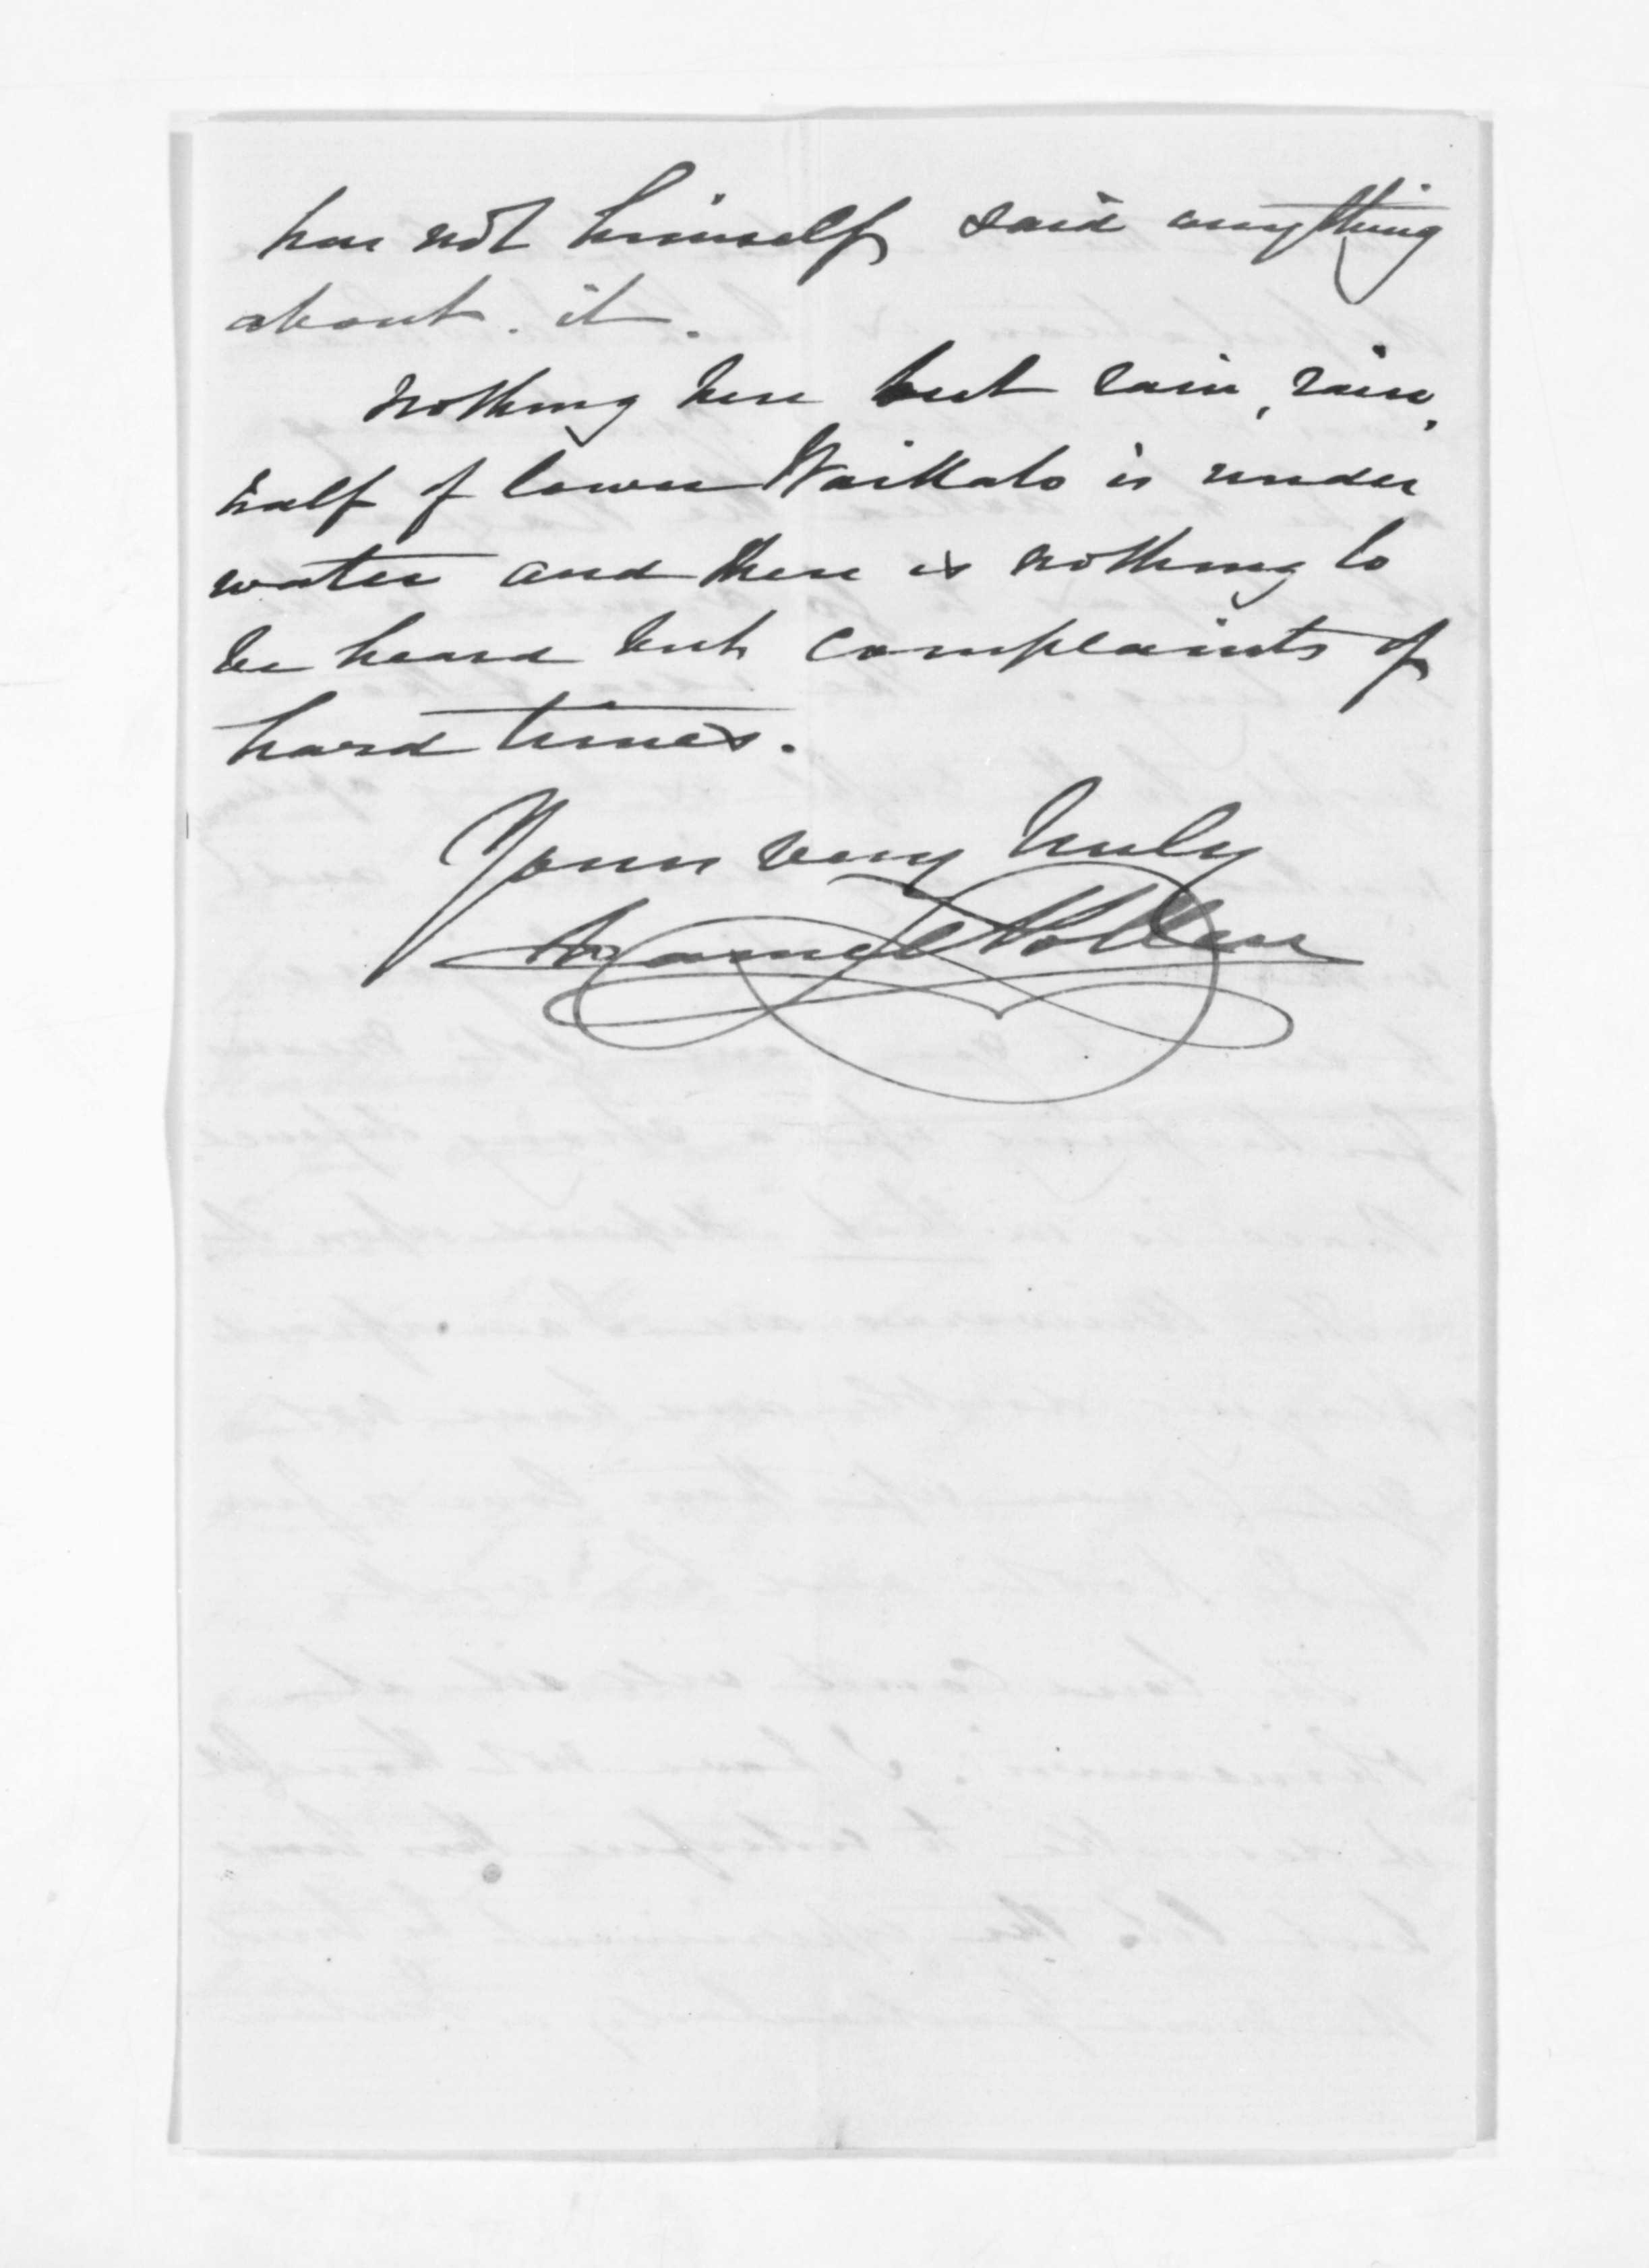 has not himself said anything
about it.
Nothing here but rain, rain,
half of lower Waikato is under
water and there is nothing to
be heard but complaints of
hard times.
Yours very truly
Daniel Pollen